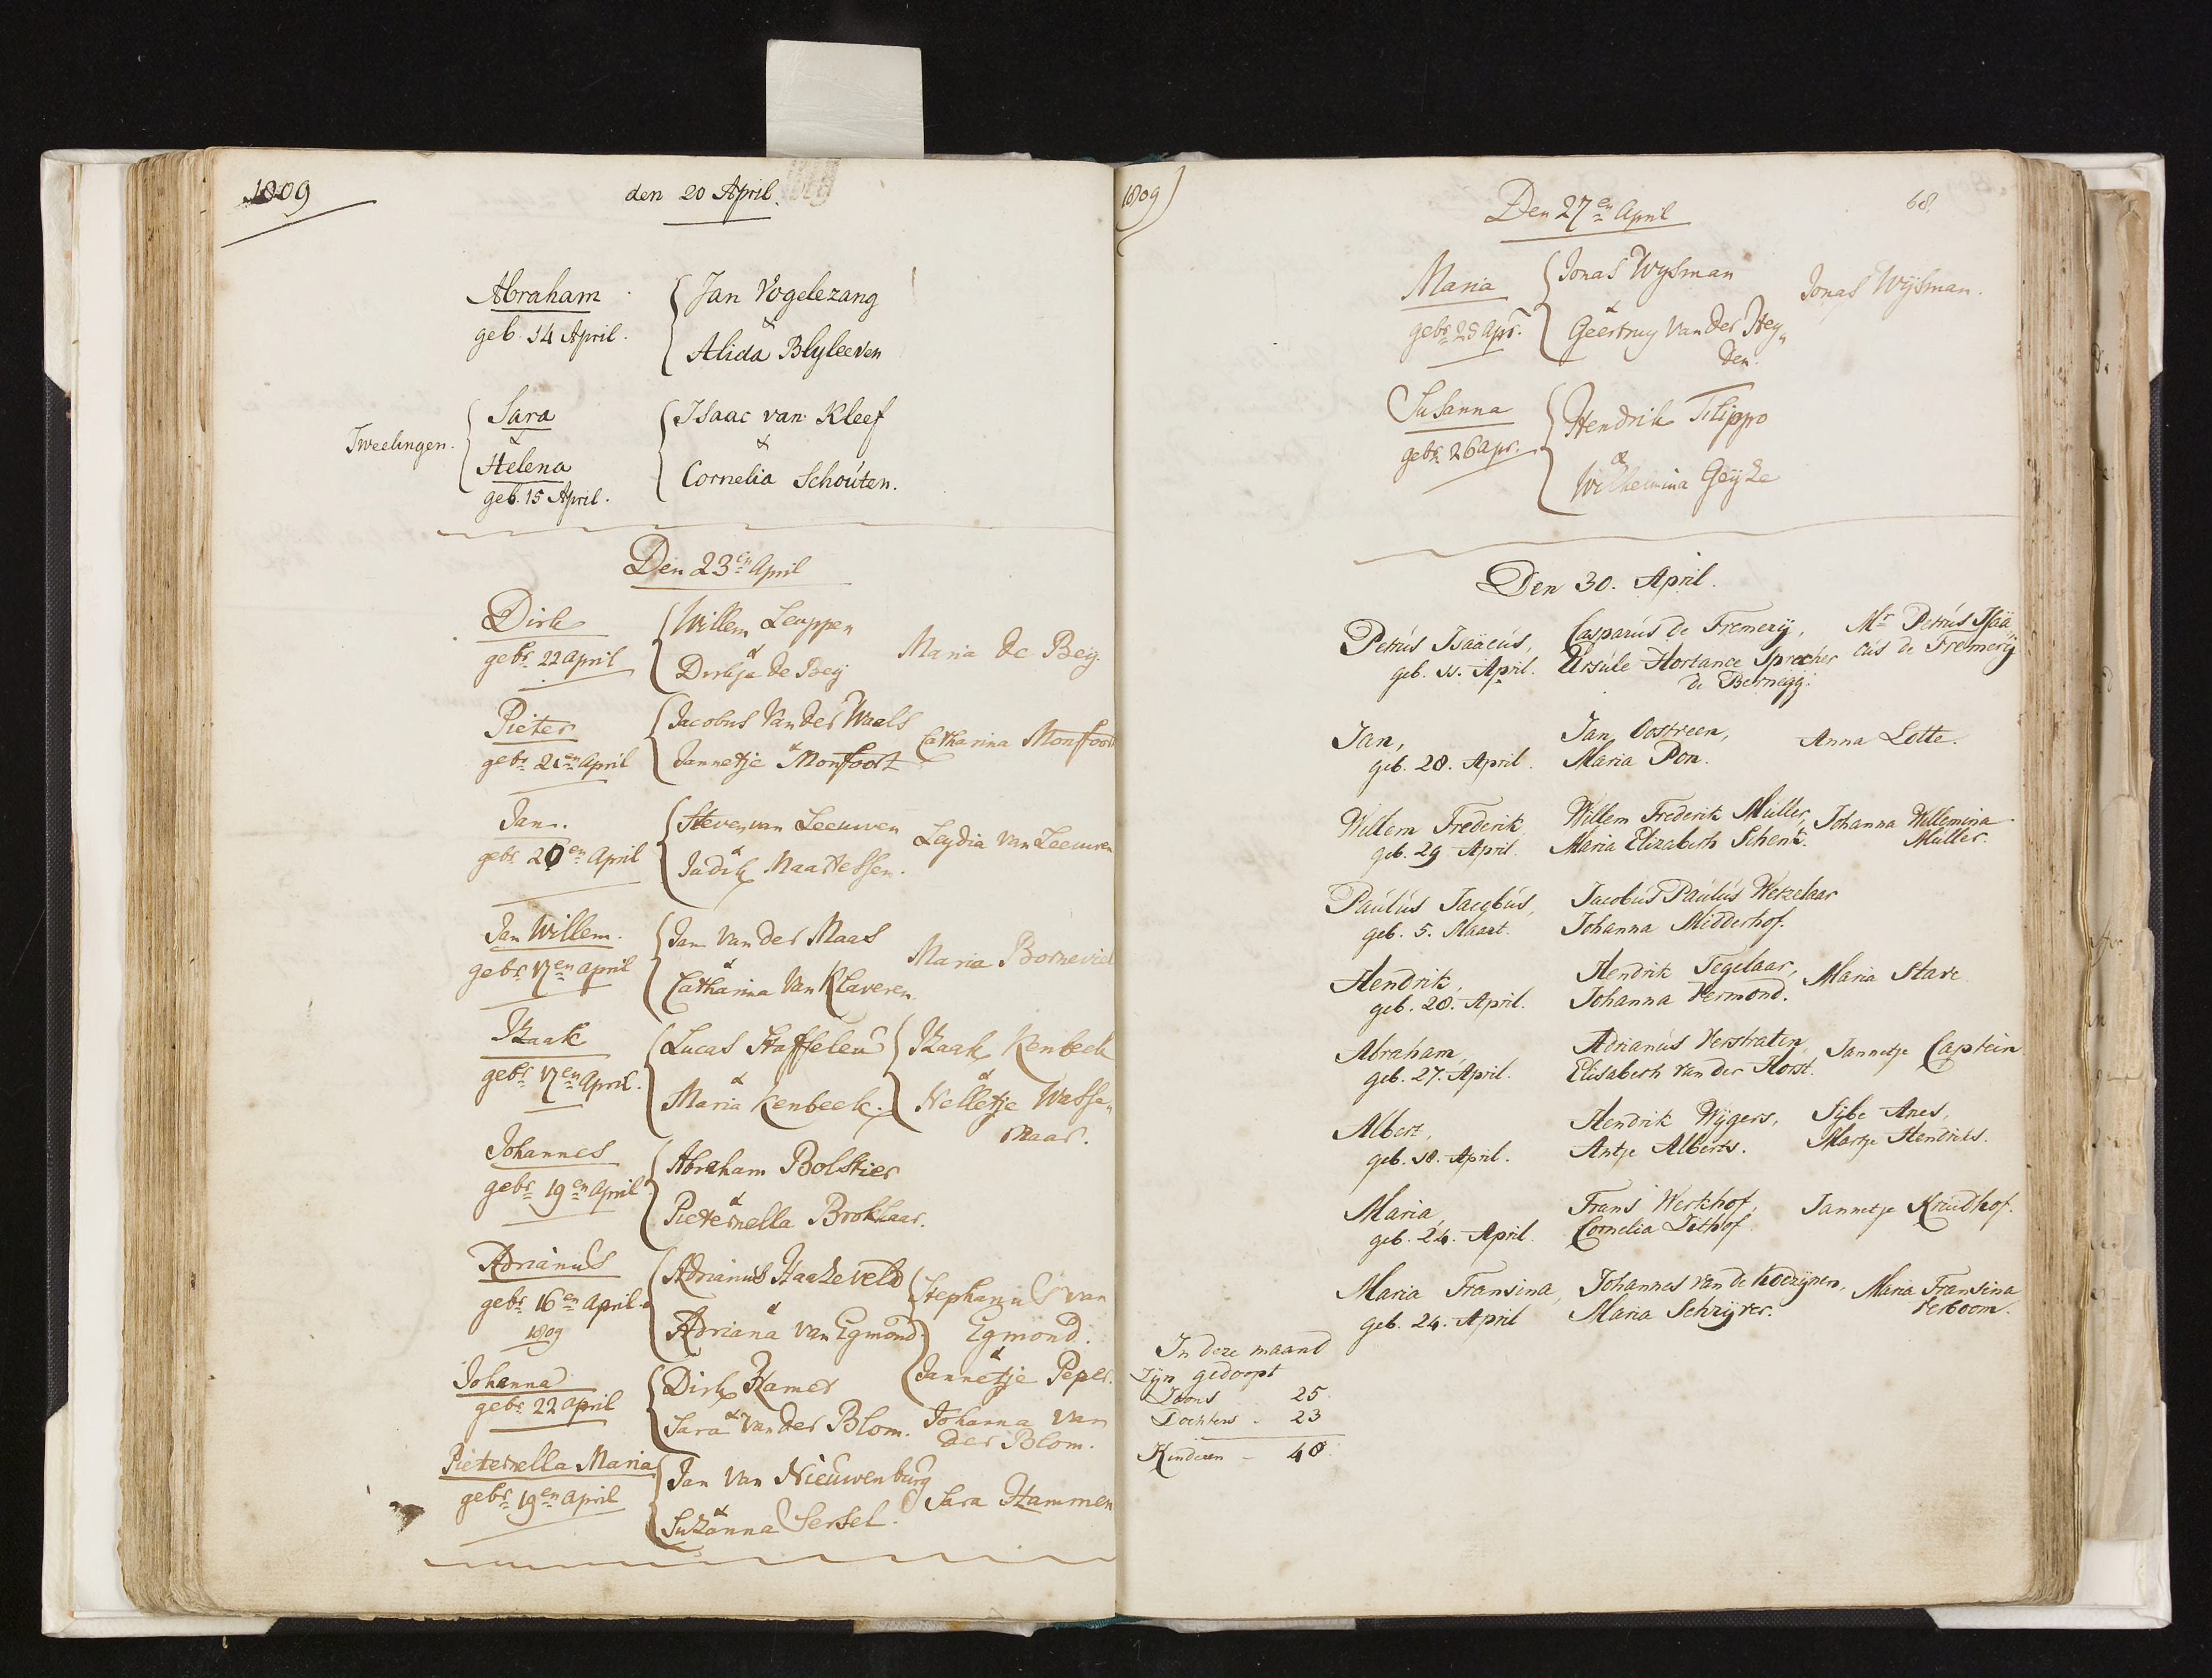 1809
den 20 April.
Abraham
geb. 14 April.
Jan Vogelezang
&
Alida Blyleeven
Tweelingen.
Sara
&
Helena
geb. 15 April.
Isaac van Kleef
&
Cornelia Schoúten.
Den 23en April
Dirk
gebr 22 April
Willem Leuppen
&
Dirkja de Beij
Maria de Beij.
Pieter
gebr 21en April
Jacobus Van der Waals
&
Jannetje Monfoort
Catharina Monfoort
Jan.
gebr 20en April
Steven van Leeuwen
&
Judik Maatlessen.
Leydia van Leeuwen
Jan Willem.
gebr 17en April
Jan van der Maas
&
Catharina Van Klaveren.
Maria
Izaak
gebr 17en April.
Lucas Staffeleu
&
Maria Kenbeek.
Izaak Kenbeek
&
Nelletje Wasse„
naar.
Johannes
gebr 19en April
Abraham Bolskier
&
Pieternella Brokkaar.
Adrianus
gebr 16en April.
1809
Adrianus Haazeveld
&
Adriana van Egmond
Stephanus van
Egmond.
&
Jannetje Peper.
Johanna
gebr 22 April
Dirk Kamer
&
Sara Van der Blom.
Johanna van
der Blom.
Pieternella Maria
gebr 19en April
Jan Van Nieuwenburg
&
Suzanna Sersel.
Sara Hammen
1809
Den 27en April
68.
Maria
gebr 25 Apr.
Jonas Wysman
&
Geertruy Van der Hey„
den.
Jonas Wijsman.
Susanna
gebr 26 Apr.
Hendrik Filippo
&
Wilhelmina Geijze
Den 30. April.
Petrús Isaäcús,
geb. 11. April.
Casparús de Fremerij,
Ursúle Hortance Sprecher
de Bernegg.
Mr Petrús Isaä„
cús de Fremerij
Jan,
geb. 28. April.
Jan Oostveen,
Maria Pon.
Anna Lotte.
Willem Frederik,
geb. 29 April.
Willem Frederik Müller,
Maria Elizabeth Schenk.
Johanna Willemina
Müller.
Paúlús Jacobús,
geb. 5. Maart.
Jacobús Paúlús Wetzelaar
Johanna Midderhof.
Hendrik,
geb. 28. April.
Hendrik Tegelaar,
Johanna Vermond.
Maria Stave
Abraham,
geb. 27. April.
Adrianús Verstraten,
Elisabeth van der Horst.
Jannetje Captein
Albert,
geb. 18. April.
Hendrik Wijgers,
Antje Alberts.
Sijbe Anes,
Martje Hendriks.
Maria
geb. 24. April.
Frans Werkhof,
Cornelia Uithof.
Jannetje Kruidhof.
Maria Fransina,
geb. 24. April
Johannes van de Koozijnen,
Maria Schrijver.
Maria Fransina
Verboom.
In deze maand
zijn gedoopt
Zoons 25
Dochters - 23
Kinderen - 48.